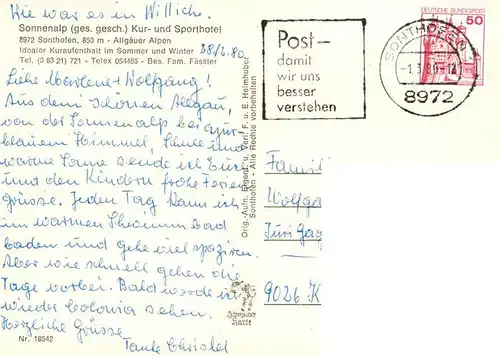 Wie war es in Willich.
Sonnenalp (ges. gesch.) Kur- und Sporthotel
8972 Sonthofen, 850 m - Allgäuer Alpen
Idealer Kuraufenthalt im Sommer und Winter
28/2.80
Tel. (0 83 21) 721 - Telex 054465 - Bes. Fam. Fässler
Liebe Marlene + Wolfgang!
Aus dem schönen Allgäu,
von der Sonnenalp bei azur-
blauem Himmel, Schnee und
warme Sonne sende ich Euch
und den Kindern frohe Ferien
Grüsse. Jeden Tag kann ich
im warmen Schwimmbad
baden und gehe viel spazieren.
Aber wie schnell gehen die
Tage vorbei. Bald werde ich
wieder Colonia sehen.
Herzliche Grüsse
Tante Christel
Nr. 18542
Orig.-Aufn. Eigent. u. Verl. F. u. E. Heimhuber
Sonthofen - Alle Rechte vorbehalten
Schöning
Karte
Post-
damit
wir uns
besser
verstehen
SONTHOFEN
-1.3.80-12
8972
DEUTSCHE BUNDESPOST
50
Famili
Wolfga
Juri Gag
9026 K